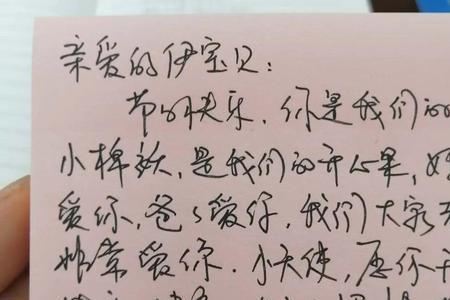 亲爱的伊宝贝：
节日快乐，你是我们的
小棉袄，是我们的开心果，妈
爱你，爸爸爱你，我们大家
非常爱你．小天使，愿你